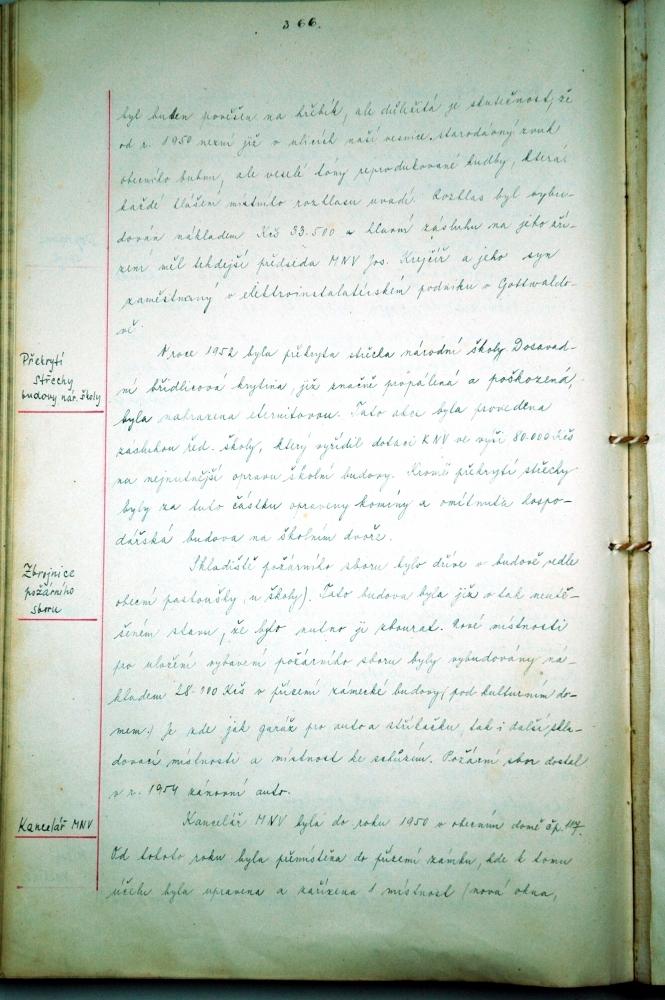 366.
byl buben pověšen na hřebík, ale důležitá je skutečnost, že
od r. 1950 nezní již v ulicích naší vesnice starodávný zvuk
obecního bubnu, ale veselé tóny reprodukované hudby, která
každé hlášení místního rozhlasu uvádí. Rozhlas byl vybu-
dován nákladem Kčs 33.500 a hlavní zásluhu na jeho zří-
zení měl tehdejší předseda MNV Jos. Krejčíř a jeho syn
zaměstnaný v elektroinstalatérském podniku v Gottwaldo-
vě.
Překrytí
střechy
budovy nár. školy
V roce 1952 byla překryta střecha národní školy. Dosavad-
ní břidlicová krytina, již značně propálená a poškozená,
byla nahrazena eternitovou. Tato akce byla provedena
zásluhou řed. školy, který vyřídil dotaci KNV ve výši 80.000 Kčs
na nejnutnější opravu školní budovy. Kromě překrytí střechy
byly za tuto částku opraveny komíny a omítnuta hospo-
dářská budova na školním dvoře.
Zbrojnice
požárního
sboru
Skladiště požárního sboru bylo dříve v budově vedle
obecní pastoušky, u školy). Tato budova byla již v tak neutě-
šeném stavu, že bylo nutno ji zbourat. Nové místnosti
pro uložení vybavení požárního sboru byly vybudovány ná-
kladem Kčs v přízemí zámecké budovy (pod kulturním do-
mem.) Je zde jak garáž pro auto a stříkačku, tak i další skla-
dovací místnosti a místnost ke schůzím. Požární sbor dostal
v r. 1954 zánovní auto.
Kancelář MNV
Kancelář MNV byla do roku 1950 v obecním domě čp. 117.
Od tohoto roku byla přemístěna do přízemí zámku, kde k tomu
účelu byla upravena a zařízena 1 místnost (nová okna,